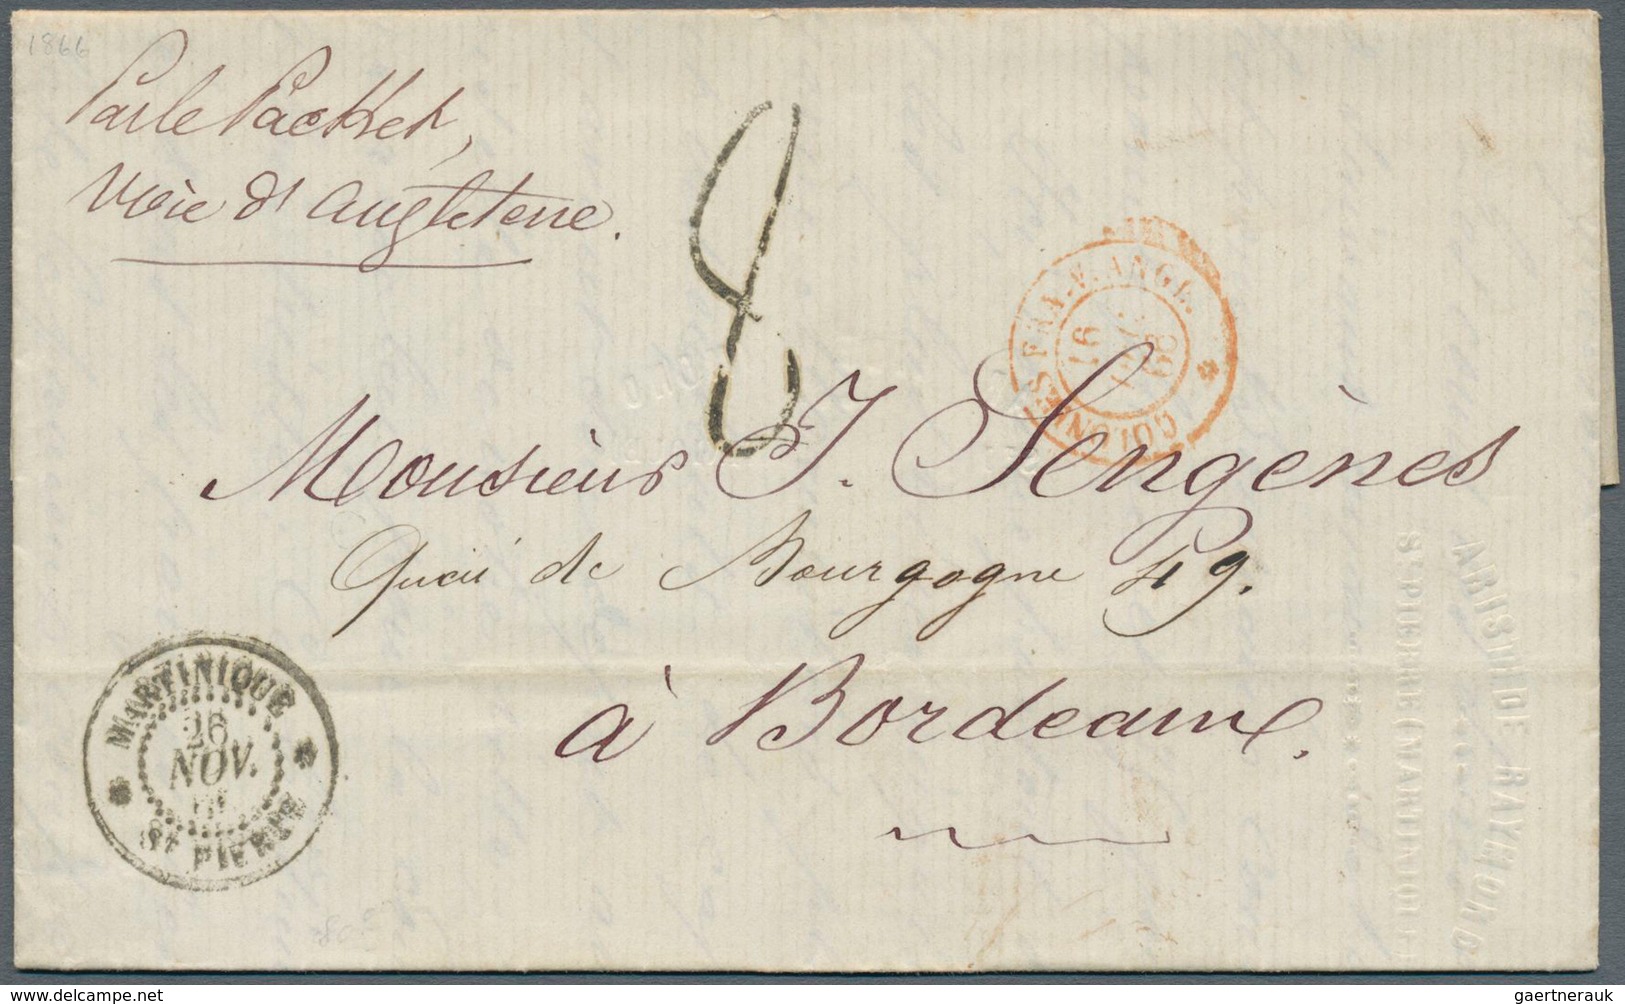 1866
Par le Packet,
Voie d'Angleterre.
8
COLONIES FRA. V. ANGL.
16
66
Monsieur J. Sengènes
Quai de Bourgogne 49.
à Bordeaux.
MARTINIQUE
26
NOV.
ST PIERRE
ARISTIDE RAYMOND
ST PIERRE (MARTINIQUE)
gaertnerauk